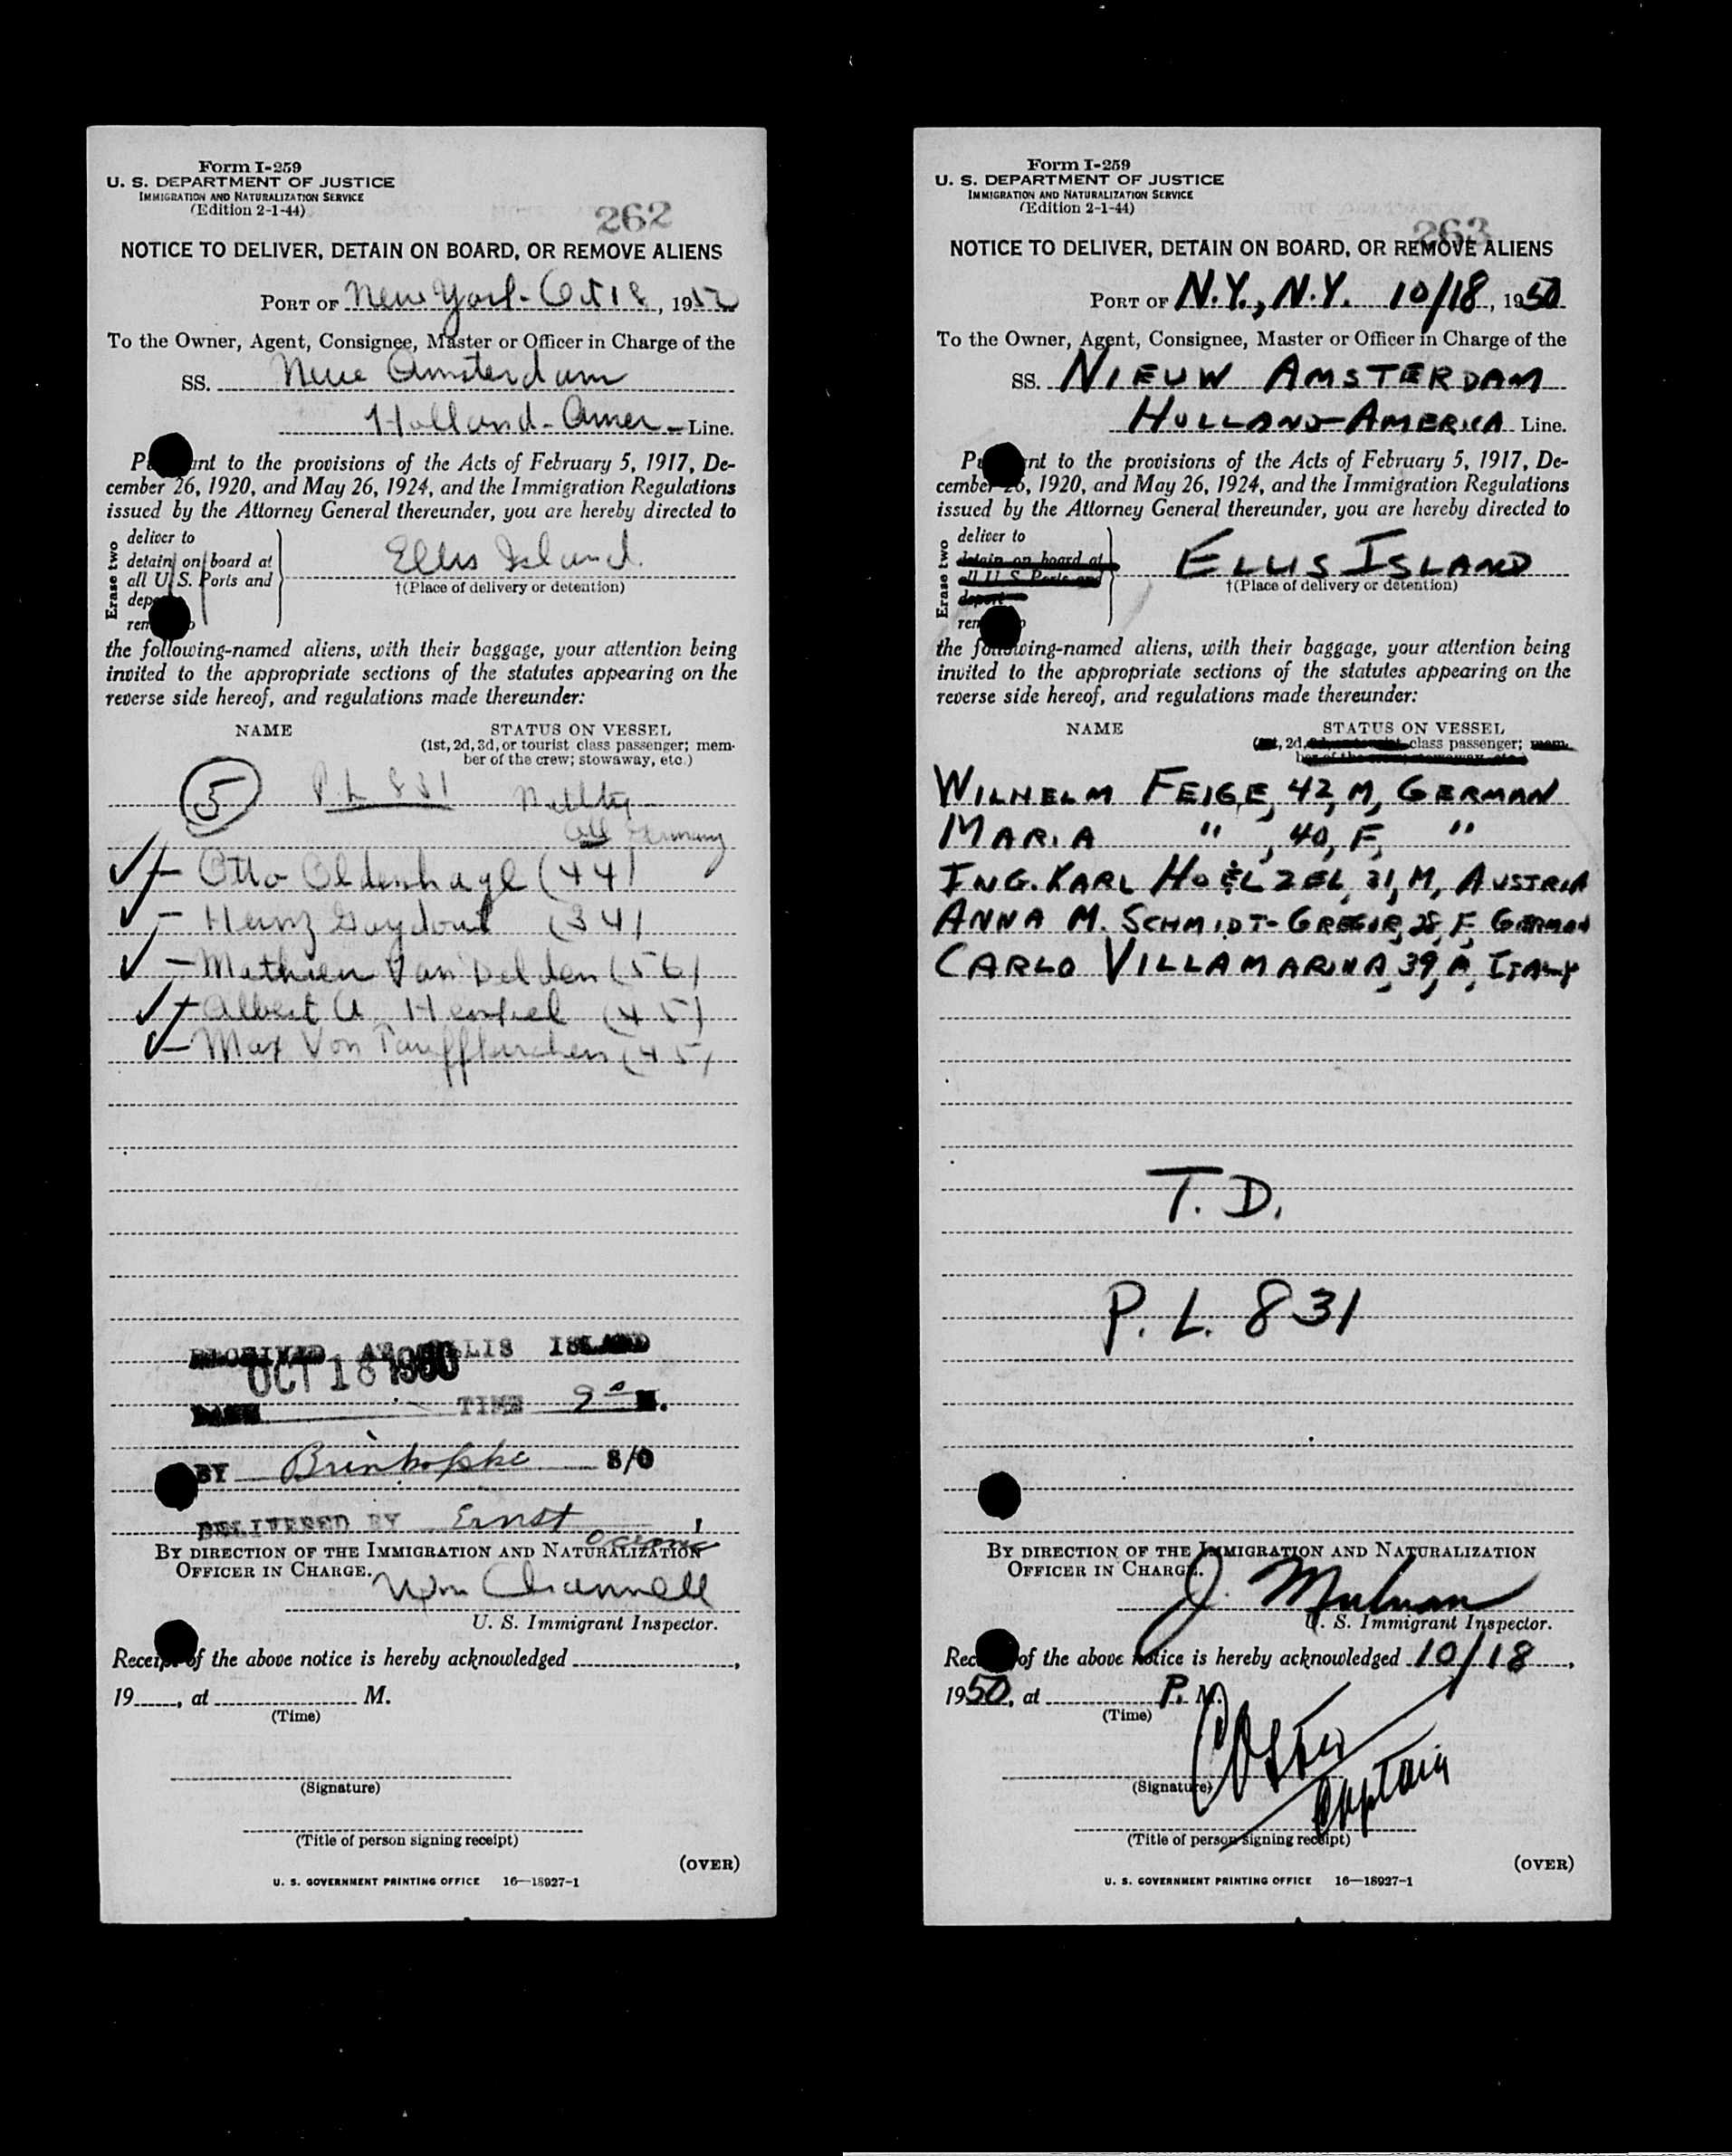 Form I-259
U. S. DEPARTMENT OF JUSTICE
IMMIGRATION AND NATURALIZATION SERVICE
(Edition 2-1-44)
262
NOTICE TO DELIVER, DETAIN ON BOARD, OR REMOVE ALIENS
PORT OF New York - Oct 18, 1950
To the Owner, Agent, Consignee, Master or Officer in Charge of the
SS. Neue Amsterdam
Holland-Amer - Line.
nt to the provisions of the Acts of February 5, 1917, De-
cember 26, 1920, and May 26, 1924, and the Immigration Regulations
issued by the Attorney General thereunder, you are hereby directed to
Erase two
deliver to
detain on board at
all U. S. Ports and
Ellis Island
†(Place of delivery or detention)
the following-named aliens, with their baggage, your attention being
invited to the appropriate sections of the statutes appearing on the
reverse side hereof, and regulations made thereunder:
NAME STATUS ON VESSEL
(1st, 2d, 3d, or tourist class passenger; mem-
ber of the crew; stowaway, etc.)
5 P.L 831
All Germany
Otto Oldenhage (44)
Heinz (34)
Mathieu Van Delden (56)
Albert A. (45)
Max Von Tauffkirchen (45)
RECEIVED AT ELLIS ISLAND
OCT 18 1950
DATE TIME 9 M.
BY S/O
DELIVERED BY Ernst
BY DIRECTION OF THE IMMIGRATION AND NATURALIZATION
OFFICER IN CHARGE.
Wm Channell
U. S. Immigrant Inspector.
Receipt of the above notice is hereby acknowledged ,
19 , at M.
(Time)
(Signature)
(Title of person signing receipt)
(OVER)
U. S. GOVERNMENT PRINTING OFFICE 16—18927-1
Form I-259
U. S. DEPARTMENT OF JUSTICE
IMMIGRATION AND NATURALIZATION SERVICE
(Edition 2-1-44)
263
NOTICE TO DELIVER, DETAIN ON BOARD, OR REMOVE ALIENS
PORT OF N.Y., N.Y. 10/18, 1950
To the Owner, Agent, Consignee, Master or Officer in Charge of the
SS. NIEUW AMSTERDAM
HOLLAND-AMERICA Line.
nt to the provisions of the Acts of February 5, 1917, De-
cember 26, 1920, and May 26, 1924, and the Immigration Regulations
issued by the Attorney General thereunder, you are hereby directed to
Erase two
deliver to
detain on board at
all U. S. Ports and
deport
ELLIS ISLAND
†(Place of delivery or detention)
the following-named aliens, with their baggage, your attention being
invited to the appropriate sections of the statutes appearing on the
reverse side hereof, and regulations made thereunder:
NAME STATUS ON VESSEL
2d, class passenger;
WILHELM FEIGE, 42, M, GERMAN
MARIA " , 40, F, "
ING. KARL HOELZEL, 31, M, AUSTRIA
ANNA M. SCHMIDT-GREGOR, 28, F, GERMAN
CARLO VILLAMARINA, 39, M, ITALY
T. D.
P. L. 831
BY DIRECTION OF THE IMMIGRATION AND NATURALIZATION
OFFICER IN CHARGE.
U. S. Immigrant Inspector.
of the above notice is hereby acknowledged 10/18,
1950, at P. M.
(Time)
(Signature)
Captain
(Title of person signing receipt)
(OVER)
U. S. GOVERNMENT PRINTING OFFICE 16—18927-1